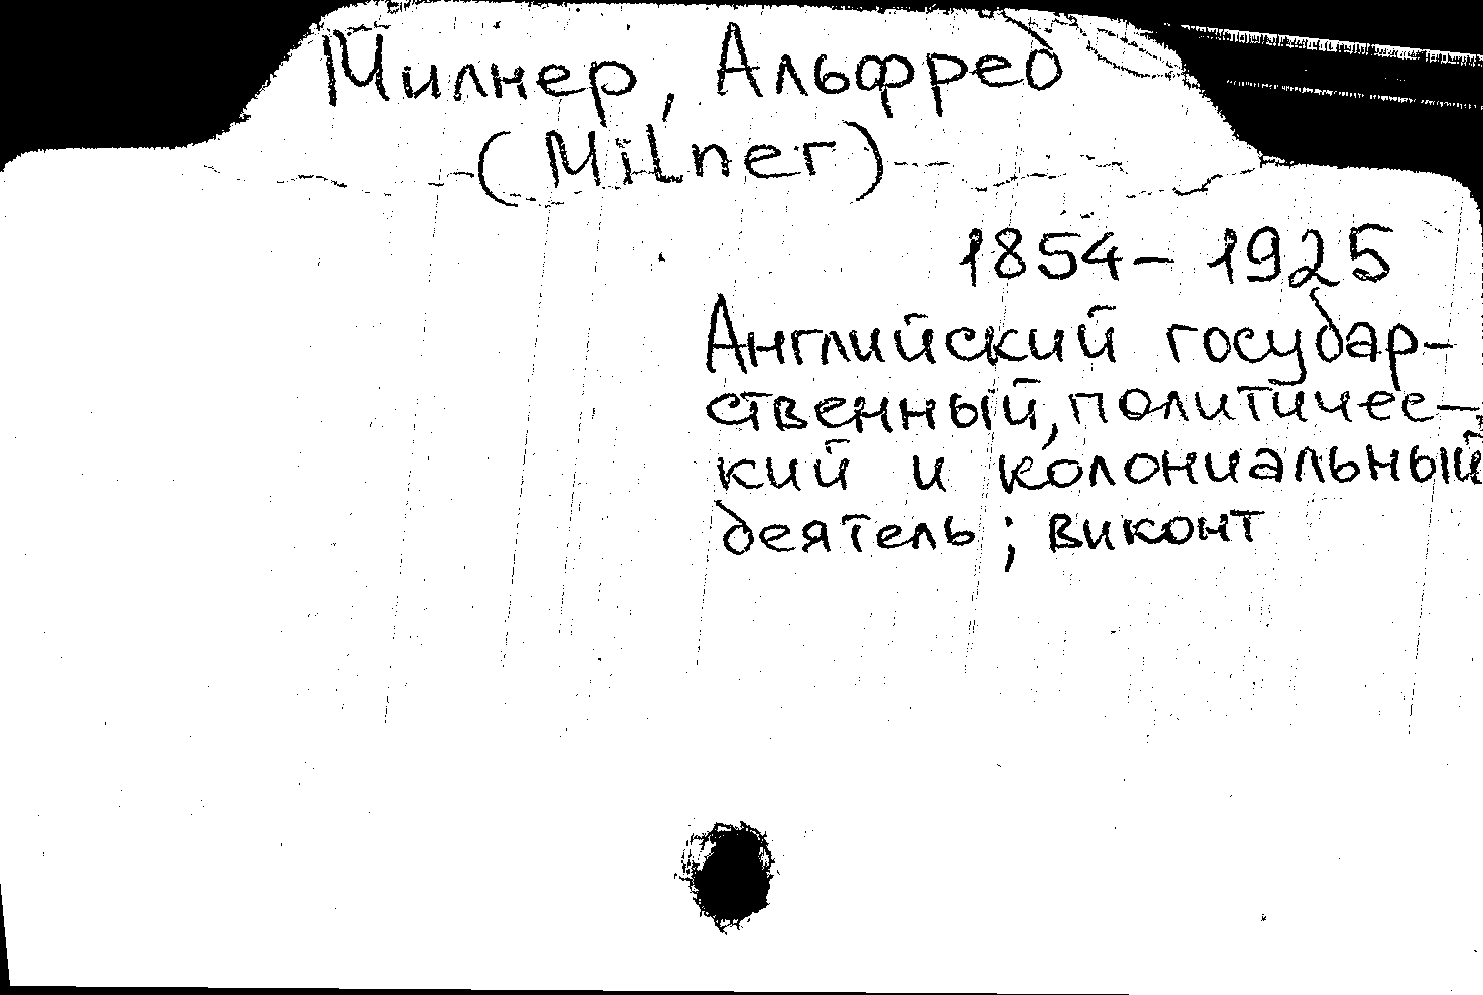 Милнер, Альфред
(Milner)
1854-1925
Английский государ-
ственный, политичес-
кий и колониальный
деятель; виконт